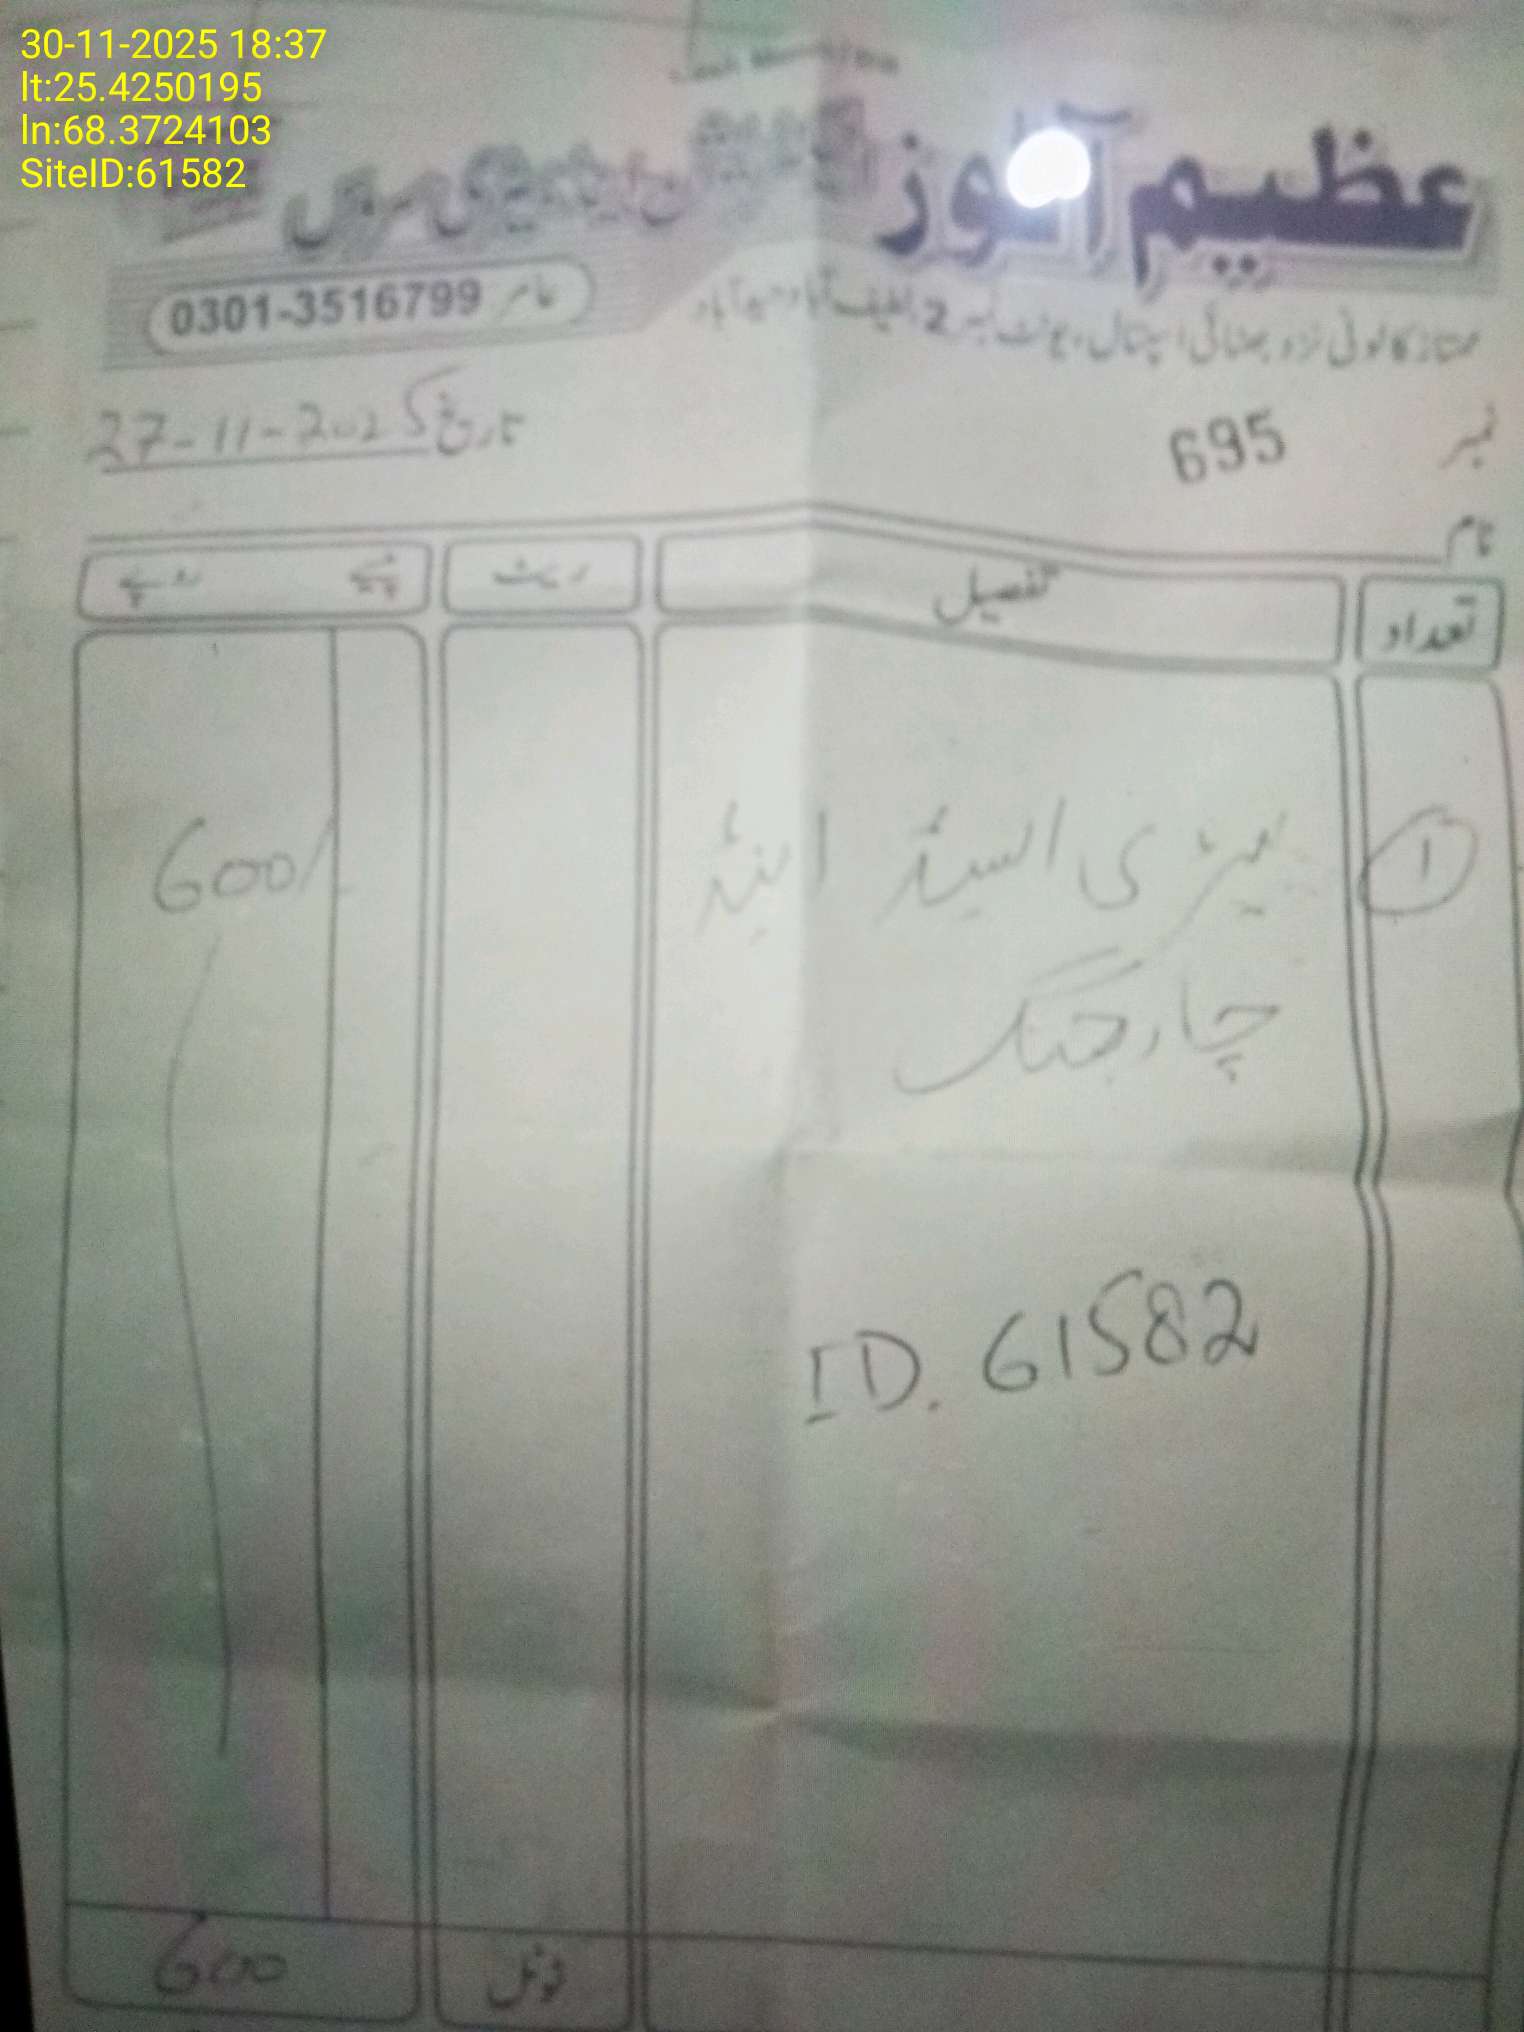 30-11-2025 18:37
lt:25.4250195
ln:68.3724103
SiteID:61582
عظیم آٹوز
عامر 0301-3516799
نمبر 2 لطیف آباد حیدرآباد
نمبر 695
تاریخ 27-11-2025
نام
تعداد تفصیل ریٹ پیسے روپے
1 بیٹری السیڈ اینڈ 600/
چارجنگ
ID. 61582
ٹوٹل 600